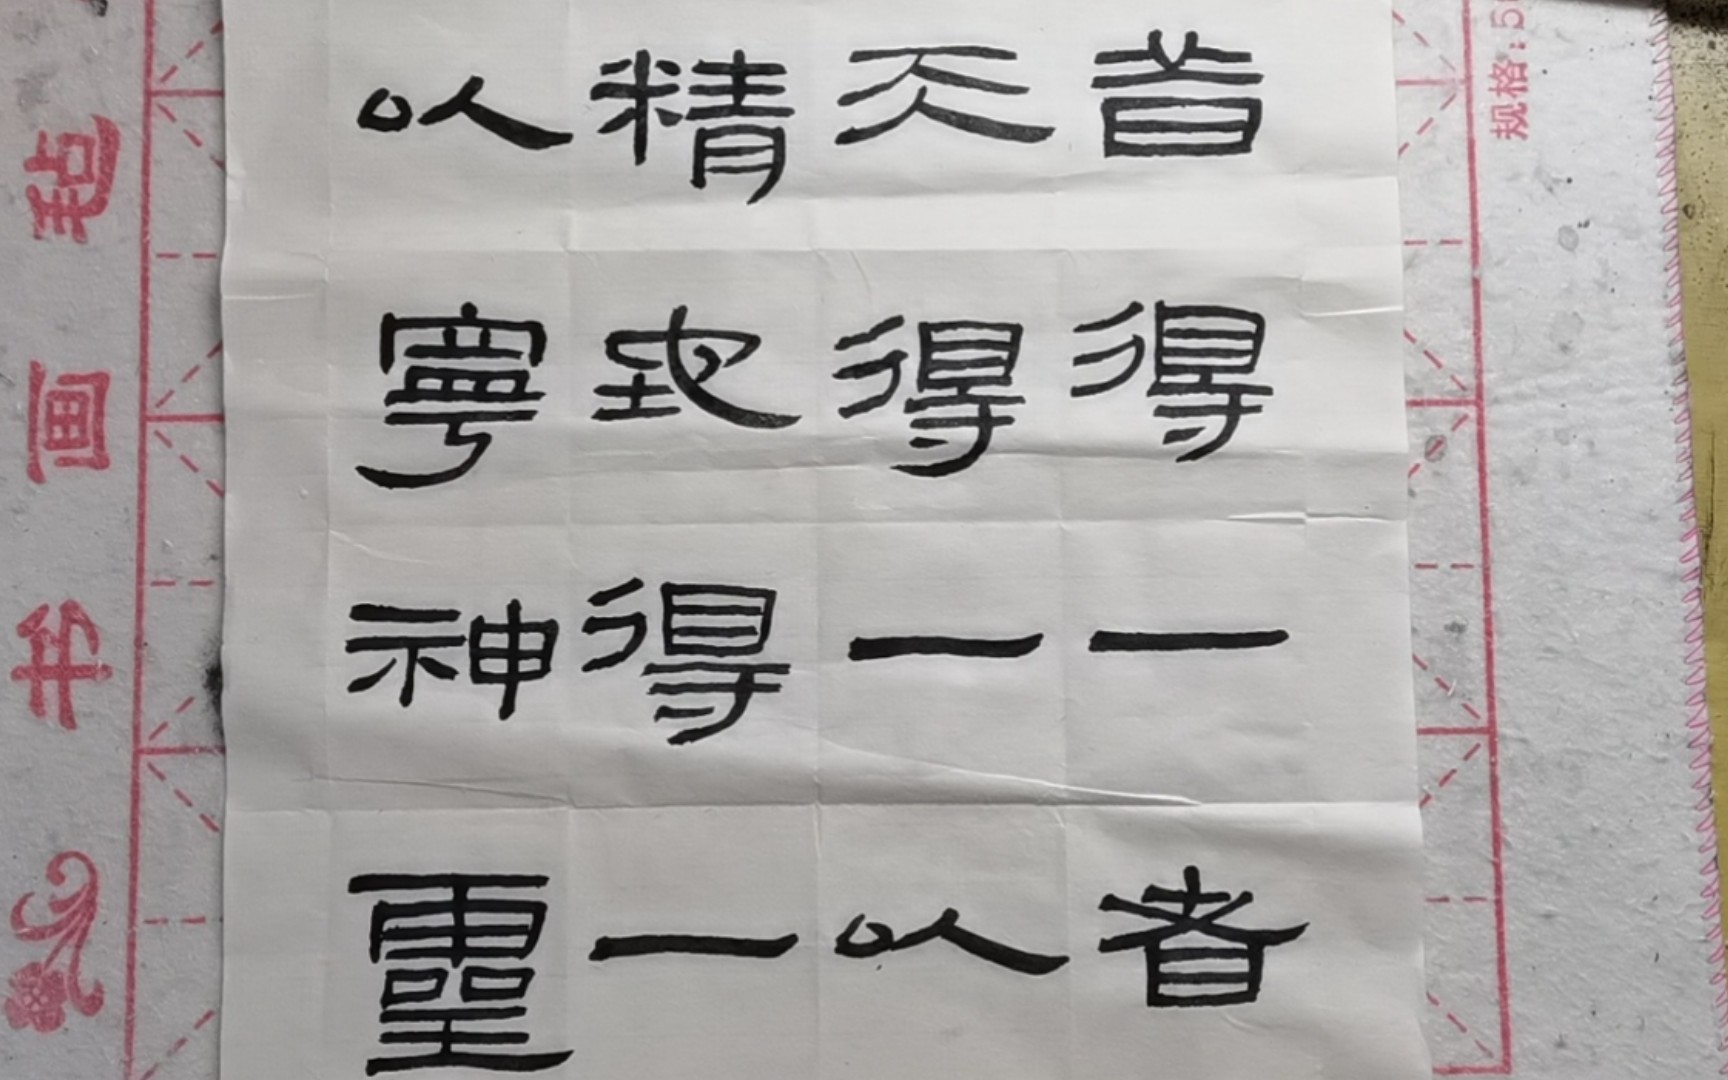 昔得一者
天得一以
精地得一
以寧神靈
书画毡
规格:5